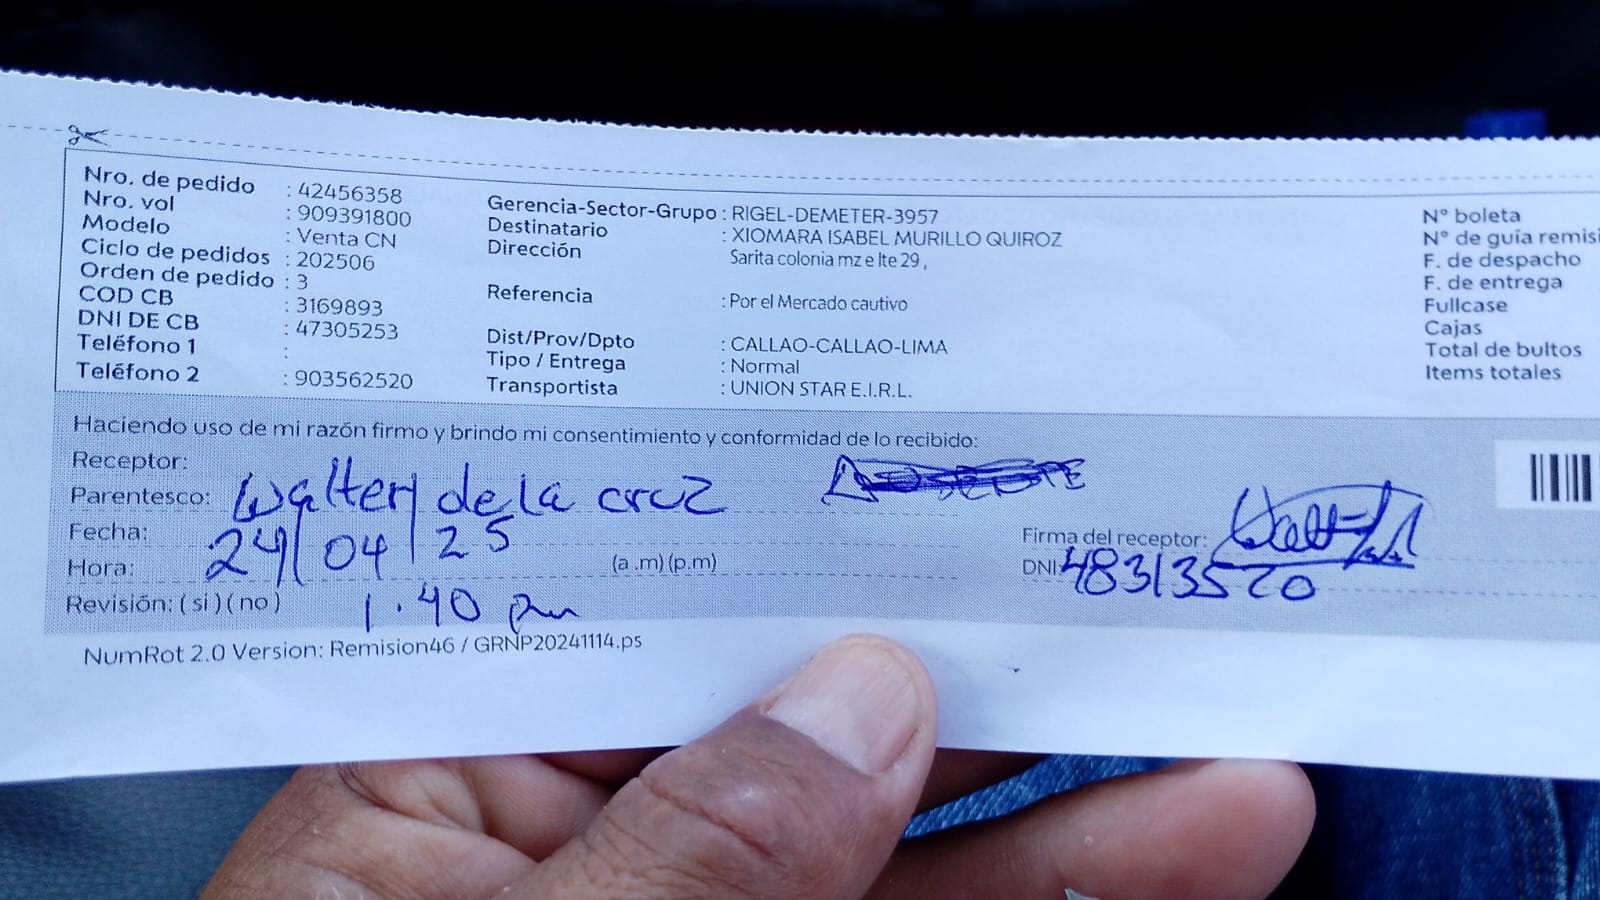 Nro. de pedido : 42456358
Nro. vol : 909391800
Modelo : Venta CN
Ciclo de pedidos : 202506
Orden de pedido : 3
COD CB : 3169893
DNI DE CB : 47305253
Teléfono 1 :
Teléfono 2 : 903562520
Gerencia-Sector-Grupo : RIGEL-DEMETER-3957
Destinatario : XIOMARA ISABEL MURILLO QUIROZ
Dirección Sarita colonia mz e lte 29 ,
Referencia : Por el Mercado cautivo
Dist/Prov/Dpto : CALLAO-CALLAO-LIMA
Tipo / Entrega : Normal
Transportista : UNION STAR E.I.R.L.
N° boleta
N° de guía remisi
F. de despacho
F. de entrega
Fullcase
Cajas
Total de bultos
Items totales
Haciendo uso de mi razón firmo y brindo mi consentimiento y conformidad de lo recibido:
Receptor:
Parentesco: Walter de la cruz
Fecha: 24/04/25
Hora: (a .m) (p.m)
Revisión: ( si ) ( no ) 1.40 pm
Firma del receptor:
DNI: 48313520
NumRot 2.0 Version: Remision46 / GRNP20241114.ps